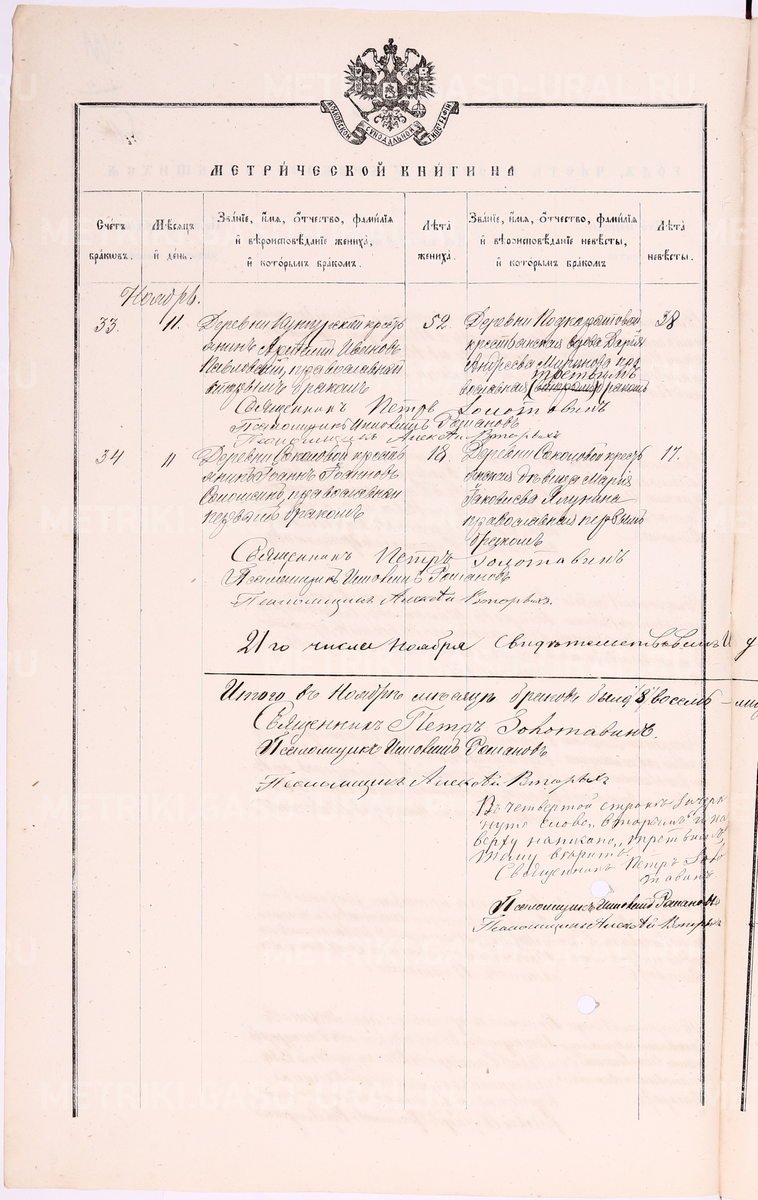 МОСКОВСКОЙ СѴНОДАЛЬНОЙ ТИПОГРАФІИ
МЕТРИ́ЧЕСКОЙ КНИ́ГИ НА
Сче́тъ бра́ковъ.
Мѣ́сяцъ и҆ де́нь.
Зва́ніе, и҆́мя, ѻ҆́тчество, фамилія
и҆ вѣроисповѣ́даніе жениха̀,
и҆ кото́рымъ бра́комъ.
Лѣ́та жениха̀.
Зва́ніе, и҆́мя, ѻ҆́тчество, фамилія
и҆ вѣроисповѣ́даніе невѣ́сты,
и҆ кото́рымъ бра́комъ.
Лѣ́та невѣ́сты.
Ноябрь.
33 11.
Деревни кресть
янинъ Иванов
православный
вторымъ бракомъ
52.
Деревни
крестьянская вдова Дарія
Андреева пра
вославная (вторымъ) третьимъ бракомъ
38
Священникъ Петръ Золотавинъ
Псаломщикъ Романовъ
Псаломщикъ Алексѣй Вторыхъ
34 11
Деревни Соколовой кресть
янинъ Іоаннъ Іоанновъ
православный
первымъ бракомъ
18.
Деревни Соколовой кресть
янская дѣвица Марія
Іаковлева Ялунина
православная первымъ
бракомъ
17.
Священникъ Петръ Золотавинъ
Псаломщикъ Романовъ
Псаломщикъ Алексѣй Вторыхъ.
21го числа Ноября Свидѣтельствовалъ И
Итого въ Ноябрѣ мѣсяцѣ браковъ было 8 восемь
Священникъ Петръ Золотавинъ.
Псаломщикъ Романовъ
Псаломщикъ Алексѣй Вторыхъ
Въ четвертой строкѣ зачерк
нуто слово „вторымъ" и на
верху написано „третьимъ"
тому вѣрить.
Священникъ Петръ Золо
тавинъ.
Псаломщикъ Романовъ
Псаломщикъ Алексѣй Вторыхъ
METRIKI.GASO-URAL.RU